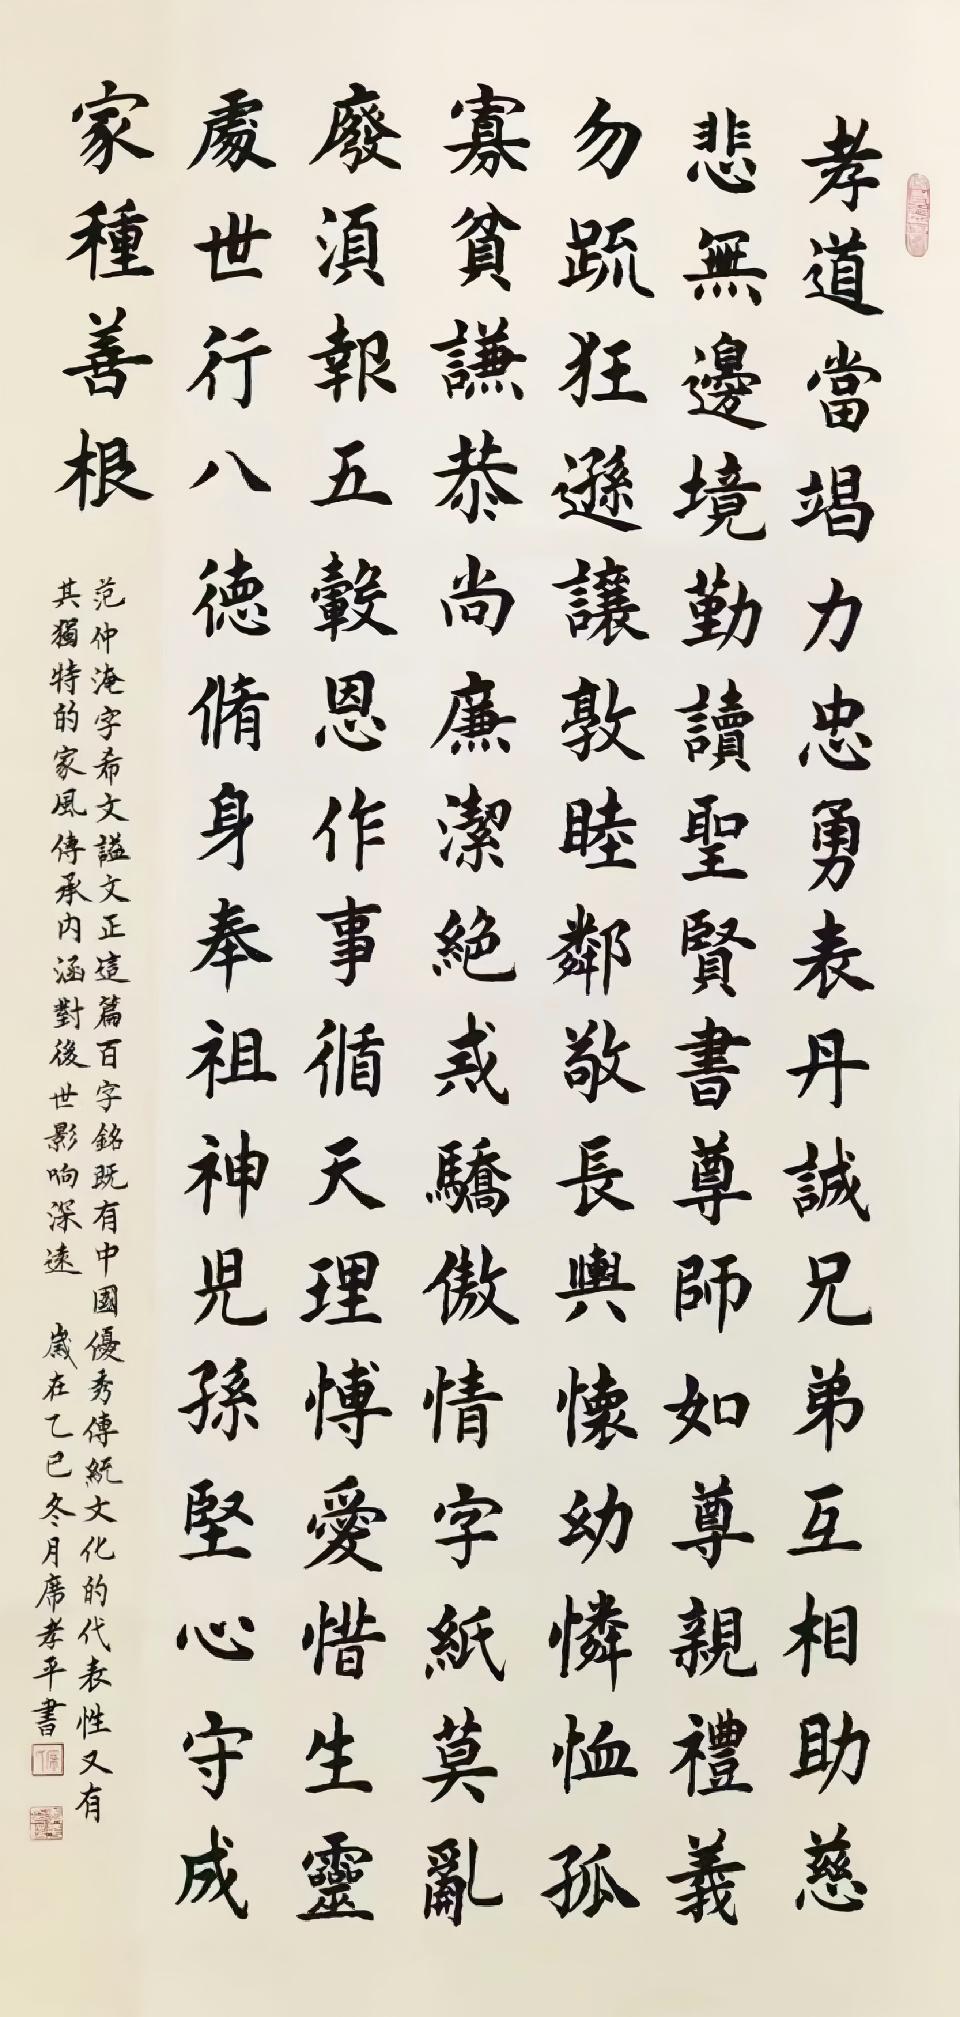 孝道當竭力忠勇表丹誠兄弟互相助慈
悲無邊境勤讀聖賢書尊師如尊親禮義
勿疏狂遜讓敦睦鄰敬長與懷幼憐恤孤
寡貧謙恭尚廉潔絕戒驕傲情字紙莫亂
廢須報五穀恩作事循天理愽愛惜生靈
處世行八德脩身奉祖神児孫堅心守成
家種善根
范仲淹字希文謚文正這篇百字銘既有中國優秀傳統文化的代表性又有
其獨特的家風傳承内涵對後世影响深遠 歲在乙巳冬月席孝平書